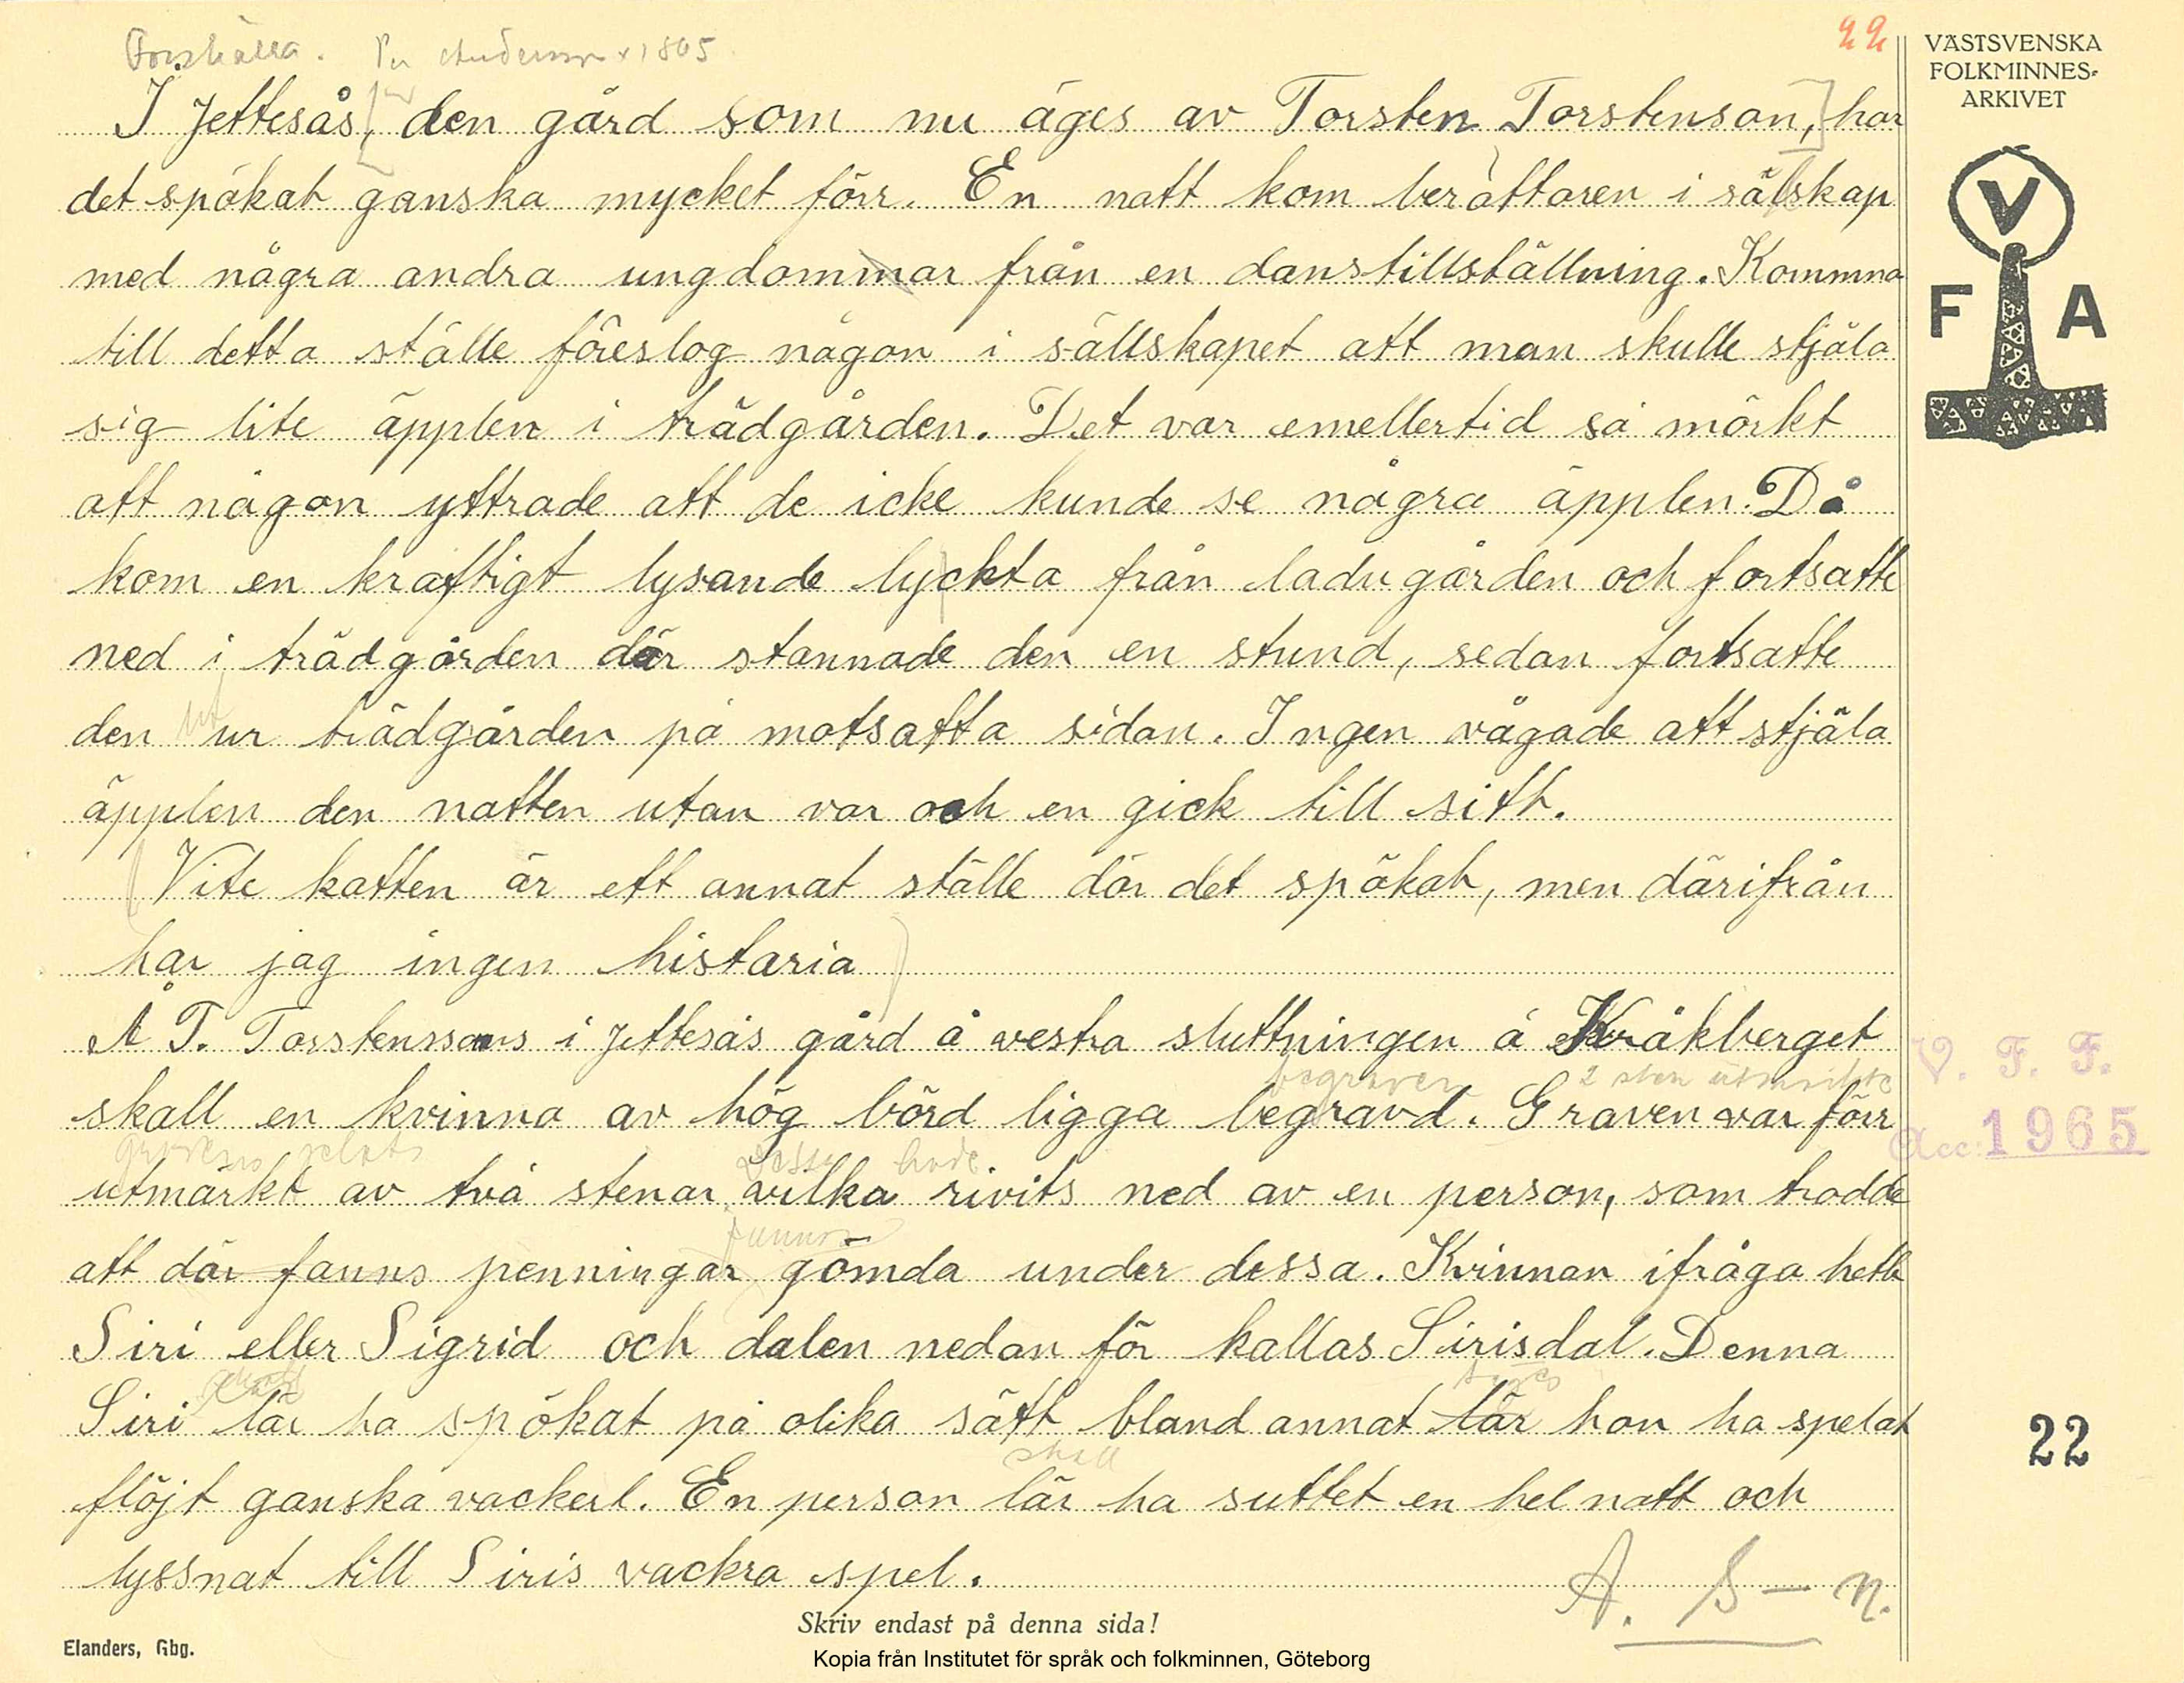 Forshälla. Per Andersson * 1865
22
VÄSTSVENSKA
FOLKMINNES-
ARKIVET
V
F A
I Jettesås, den gård som nu äges av Torsten Torstenson, har
det spökat ganska mycket förr. En natt kom berättaren i sälskap
med några andra ungdommar från en danstillställning. Kommna
till detta ställe föreslog någon i sällskapet att man skulle stjäla
sig lite äpplen i trädgården. Det var emellertid så mörkt
att någon yttrade att de icke kunde se några äpplen. Då
kom en kraftigt lysande lyckta från ladugården och fortsatte
ned i trädgården där stannade den en stund, sedan fortsatte
den ut ur trädgården på motsatta sidan. Ingen vågade att stjäla
äpplen den natten utan var och en gick till sitt.
Vite katten är ett annat ställe där det spökat, men därifrån
har jag ingen historia
Å T. Torstenssons i Jettesås gård å vestra sluttningen å Kråkberget
begraven 2 sten utmärkte
skall en kvinna av hög börd ligga begravd. Graven var förr
gravens plats dessa hade
utmärkt av två stenar vilka rivits ned av en person, som trodde
funnos
att där fanns penningar gömda under dessa. Kvinnan ifråga hette
Siri eller Sigrid och dalen nedan för kallas Sirisdal. Denna
Siri lär ha spökat på olika sätt bland annat lär hon ha spelat
skall
flöjt ganska vackert. En person lär ha suttet en hel natt och
lyssnat till Siris vackra spel.
A. S–n.
V. F. F.
Acc: 1965
22
Skriv endast på denna sida!
Elanders, Gbg.
Kopia från Institutet för språk och folkminnen, Göteborg